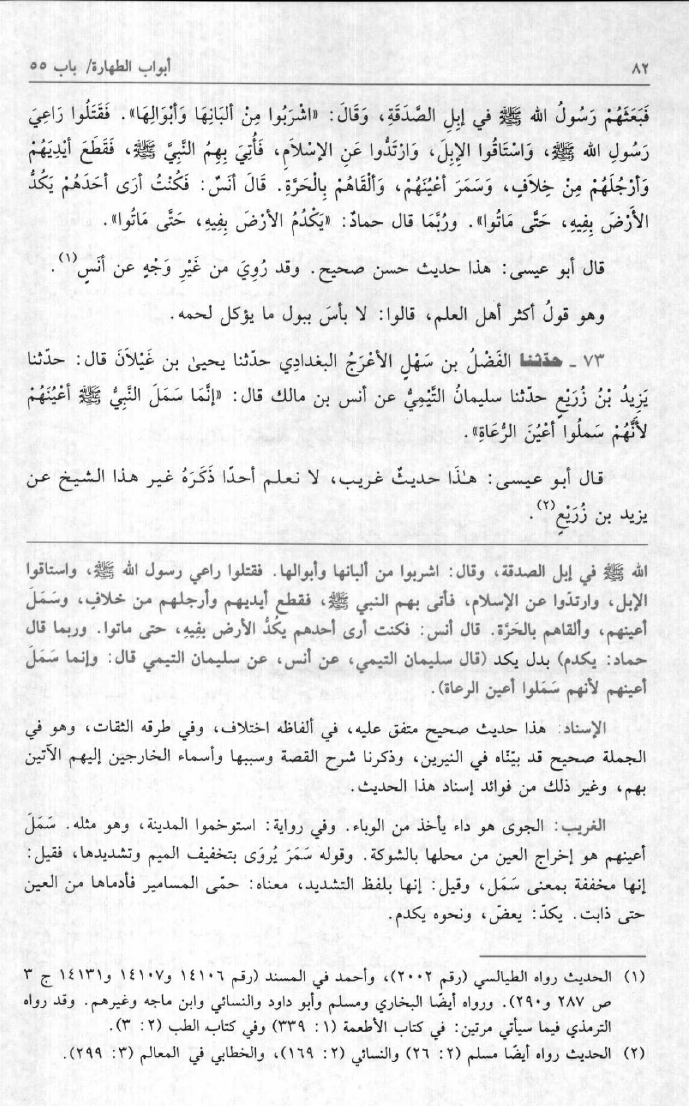 ٨٢
أبواب الطهارة/ باب ٥٥
فَبَعَثَهُمْ رَسُولُ الله ﷺ في إبِلِ الصَّدَقَةِ، وَقَالَ: «اشْرَبُوا مِنْ ألبَانِهَا وَأبْوَالِهَا». فَقَتَلُوا رَاعِيَ
رَسُولِ الله ﷺ، وَاسْتَاقُوا الإبِلَ، وَارْتَدُّوا عَنِ الإسْلاَمِ، فَأُتِيَ بِهِمُ النَّبِيَّ ﷺ، فَقَطَعَ أيْدِيَهُمْ
وَأرْجُلَهُمْ مِنْ خِلاَفٍ، وَسَمَرَ أعْيُنَهُمْ، وَألْقَاهُمْ بِالْحَرَّةِ. قَالَ أنَسٌ: فَكُنْتُ أرَى أحَدَهُمْ يَكُدُّ
الأرْضَ بِفِيهِ، حَتَّى مَاتُوا». ورُبَّمَا قال حمادٌ: «يَكْدُمُ الأرْضَ بِفِيهِ، حَتَّى مَاتُوا».
قال أبو عيسى: هذا حديث حسن صحيح. وقد رُوِيَ من غَيْرِ وَجْهٍ عن أنَسٍ(١).
وهو قولُ أكثر أهل العلم، قالوا: لا بأسَ ببول ما يؤكل لحمه.
٧٣ ـ حدّثنا الفَضْلُ بن سَهْلٍ الأعْرَجُ البغدادي حدّثنا يحيىٰ بن غَيْلاَنَ قال: حدّثنا
يَزِيدُ بْنُ زُرَيْعٍ حدّثنا سليمانُ التَّيْمِيُّ عن أنس بن مالك قال: «إنَّمَا سَمَلَ النَّبِيُّ ﷺ أعْيُنَهُمْ
لأنَّهُمْ سَملُوا أعْيُنَ الرُّعَاةِ».
قال أبو عيسى: هـٰذَا حديثٌ غريب، لا نعلم أحدًا ذَكَرَهُ غير هذا الشيخ عن
يزيد بن زُرَيْعٍ(٢).
الله ﷺ في إبل الصدقة، وقال: اشربوا من ألبانها وأبوالها. فقتلوا راعي رسول الله ﷺ، واستاقوا
الإبل، وارتدّوا عن الإسلام، فأتى بهم النبي ﷺ، فقطع أيديهم وأرجلهم من خلاف، وسَمَلَ
أعينهم، وألقاهم بالحَرَّة. قال أنس: فكنت أرى أحدهم يكُدُّ الأرض بفِيهِ، حتى ماتوا. وربما قال
حماد: يكدم) بدل يكد (قال سليمان التيمي، عن أنس، عن سليمان التيمي قال: وإنما سَمَلَ
أعينهم لأنهم سَمَلوا أعين الرعاة).
الإسناد: هذا حديث صحيح متفق عليه، في ألفاظه اختلاف، وفي طرقه الثقات، وهو في
الجملة صحيح قد بيّنّاه في النيرين، وذكرنا شرح القصة وسببها وأسماء الخارجين إليهم الآتين
بهم، وغير ذلك من فوائد إسناد هذا الحديث.
الغريب: الجوى هو داء يأخذ من الوباء. وفي رواية: استوخموا المدينة، وهو مثله. سَمَلَ
أعينهم هو إخراج العين من محلها بالشوكة. وقوله سَمَرَ يُروَى بتخفيف الميم وتشديدها، فقيل:
إنها مخففة بمعنى سَمَل، وقيل: إنها بلفظ التشديد، معناه: حمّى المسامير فأدماها من العين
حتى ذابت. يكدّ: يعضّ، ونحوه يكدم.
(١) الحديث رواه الطيالسي (رقم ٢٠٠٢)، وأحمد في المسند (رقم ١٤١٠٦ و١٤١٠٧ و١٤١٣١ ج ٣
ص ٢٨٧ و٢٩٠). ورواه أيضًا البخاري ومسلم وأبو داود والنسائي وابن ماجه وغيرهم. وقد رواه
الترمذي فيما سيأتي مرتين: في كتاب الأطعمة (١: ٣٣٩) وفي كتاب الطب (٢: ٣).
(٢) الحديث رواه أيضًا مسلم (٢: ٢٦) والنسائي (٢: ١٦٩)، والخطابي في المعالم (٣: ٢٩٩).